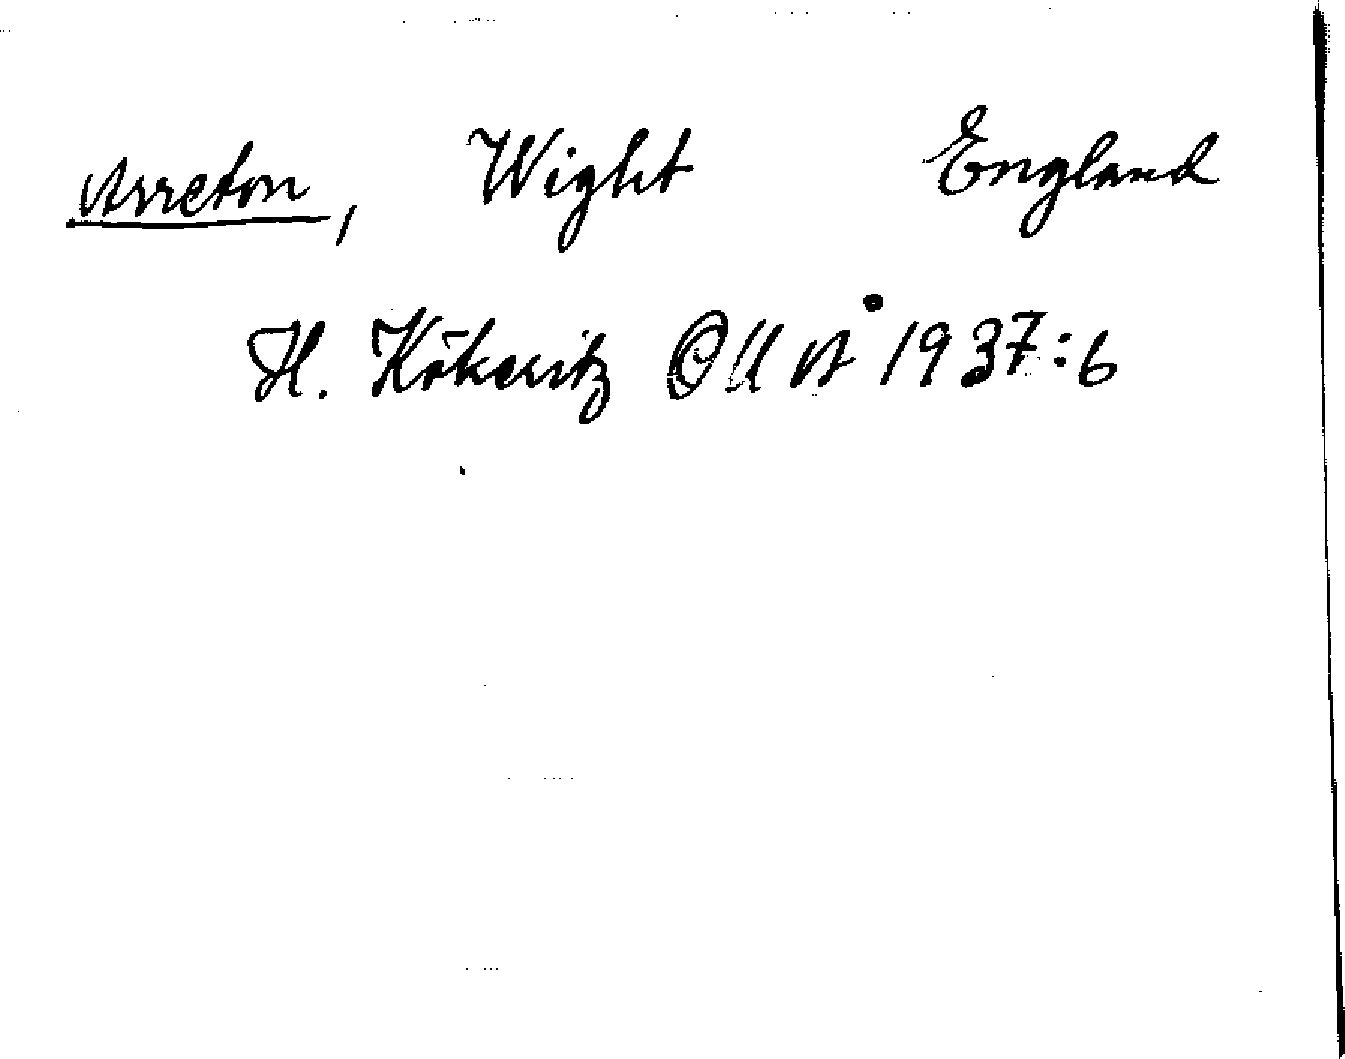 Arreton, Wight England
H. Kökeritz OUÅ 1937:6